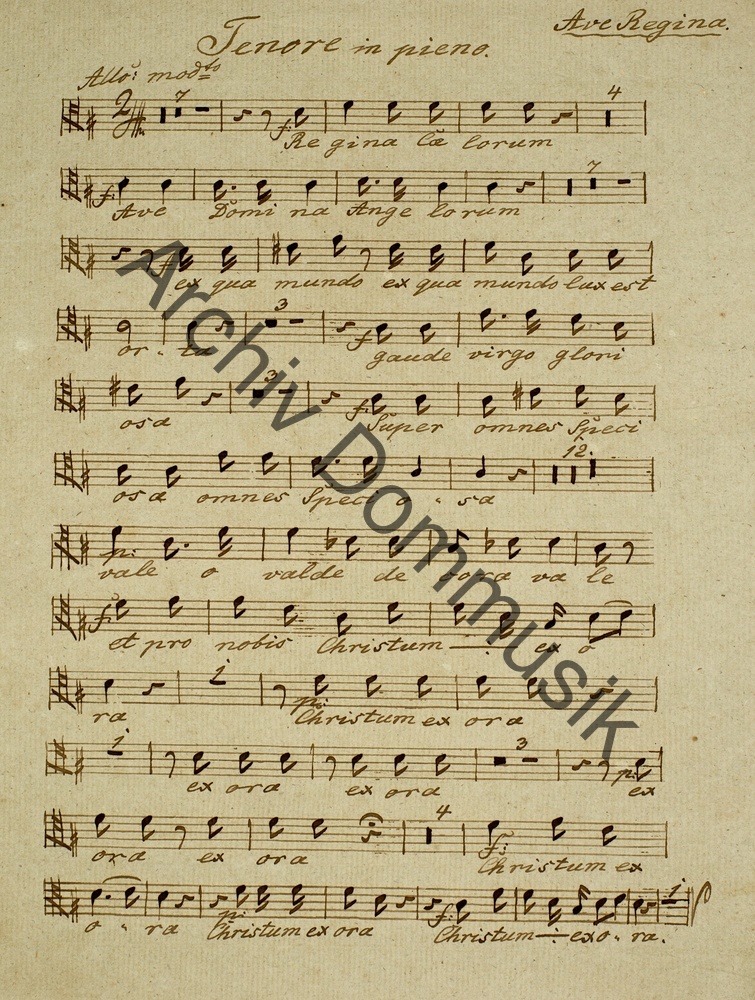 Ave Regina.
Tenore in pieno.
Allo: modto
7
4
f: Regina Cœlorum
7
f: Ave Domina Angelorum
f ex qua mundo ex qua mundo lux est
3
or - ta f gaude virgo glori
3
osa f Super omnes Speci
12.
osa omnes Speci o - sa
p: vale o valde decora vale
f: et pro nobis Christum ex o
1
ra p: Christum ex ora
1
3
ex ora ex ora p: ex
4
ora ex ora f: Christum ex
1
o - ra p: Christum ex ora f: Christum exo - ra.
Archiv Dommusik